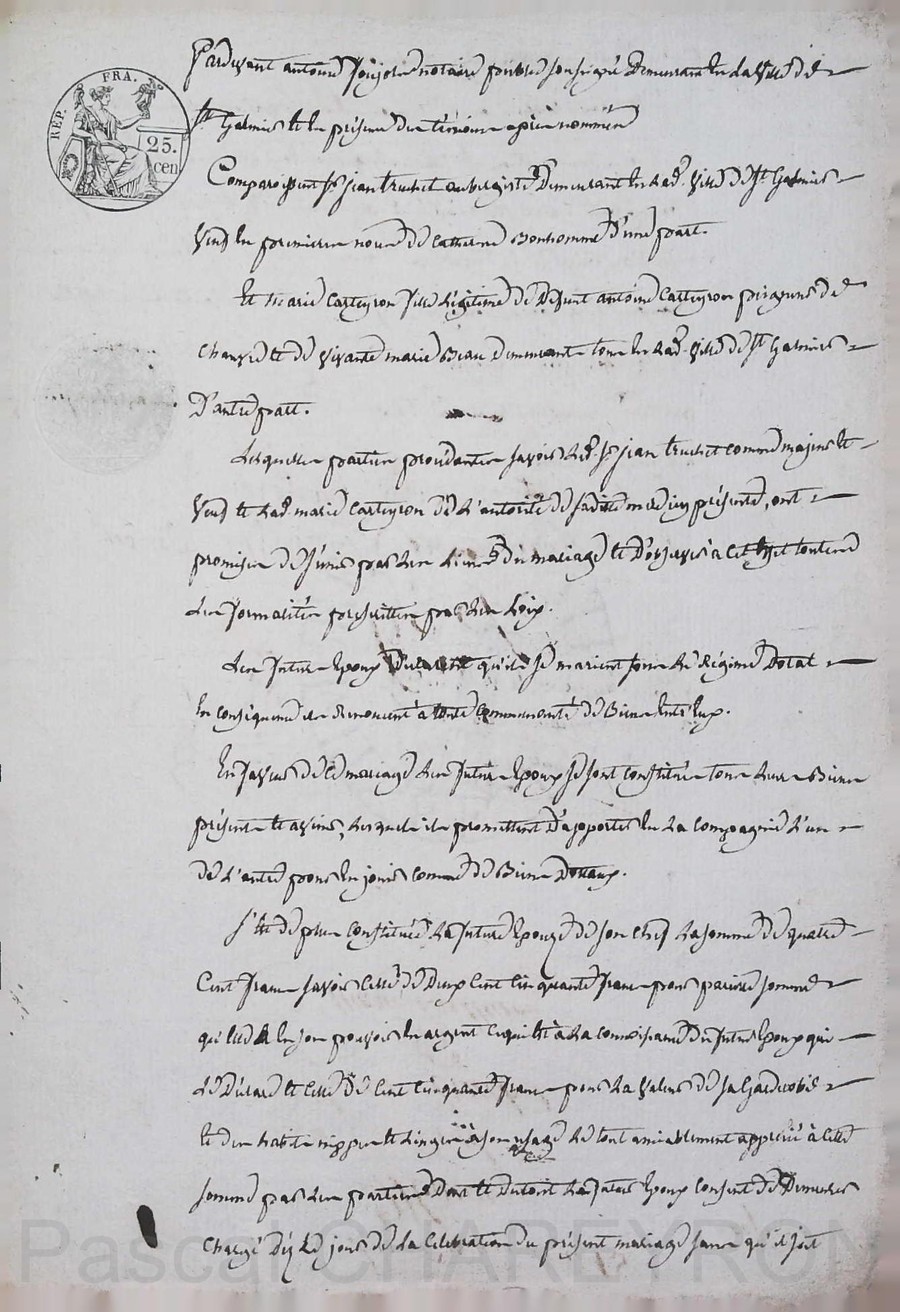 REP. FRA.
25. cen
Pardevant antoine notaire public soussigné Demeurant en la Ville de
St Galmier et en présence des témoins après nommés
Comparoissent Sr jean truchet aubergiste Demeurant en lad. Ville de St Galmier
Veuf en premieres noces de Catherine Bonhomme d'une part.
Et Marie Carteyron fille Légitime de Defunt antoine Carteyron de
et de Vivante marie Demeurante en lad. Ville de St Galmier
D'autre part.
Lesquelles parties procédantes savoir led. Sr jean truchet comme majeur et
Veuf et lad. marie Carteyron de L'autorité de sadite mere icy présente, ont
promis de s'unir par les Liens du mariage et D'observer à cet effet toutes
Les formalités prescrittes par les Loix.
Les futurs Epoux Déclarent qu'ils se marient sous Le Régime Dotal
en conséquence ils Renoncent à toute Communauté de Biens entr'Eux.
En faveur de Ce mariage Les futurs Epoux se sont constitués tous Leurs Biens
présents et avenir, Lesquels ils promettent D'apporter en La Compagnie L'un
de L'autre pour en jouir comme de Biens Dotaux.
S'Est de plus Constituée La future Epouze de son Chef La somme de quatre
Cent francs savoir Celle de Deux Cent Cinquante francs pour pareille somme
qu'elle a en son pouvoir en argent Ce qui Est à La Connoissance du futur Epoux qui
Le Déclare et Celle de Cent Cinquante francs pour La Valeur de sa Garderobe
et des habits nippes et Linges à son usage Le tout amiablement apprécié à Cette
somme par Les parties Dont et Du tout Le futur Epoux Consent de Demeurer
Chargé Dez Le jour de La Celebration du présent mariage sans qu'il soit
Pascal CHAREYRON